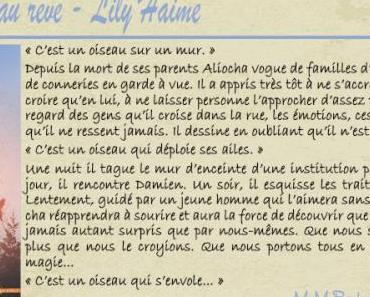 au reve - Lily Haime
« C'est un oiseau sur un mur. »
Depuis la mort de ses parents Aliocha vogue de familles d
de conneries en garde à vue. Il a appris très tôt à ne s'accr
croire qu'en lui, à ne laisser personne l'approcher d'assez
regard des gens qu'il croise dans la rue, les émotions, ces
qu'il ne ressent jamais. Il dessine en oubliant qu'il n'est
« C'est un oiseau qui déploie ses ailes. »
Une nuit il tague le mur d'enceinte d'une institution p
jour, il rencontre Damien. Un soir, il esquisse les trait
Lentement, guidé par un jeune homme qui l'aimera sans
cha réapprendra à sourire et aura la force de découvrir que
jamais autant surpris que par nous-mêmes. Que nous s
plus que nous le croyions. Que nous portons tous en
magie...
« C'est un oiseau qui s'envole... »